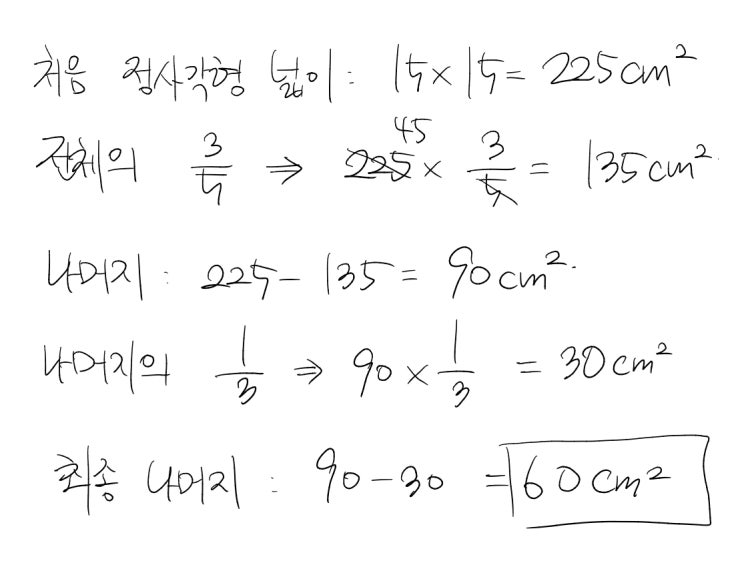 처음 정사각형 넓이 : 15 × 15 = 225 cm²
전체의 3/5 ⇒ 225 45 × 3/5 = 135 cm²
나머지 : 225 - 135 = 90 cm².
나머지의 1/3 ⇒ 90 × 1/3 = 30 cm²
최종 나머지 : 90 - 30 = 60 cm²